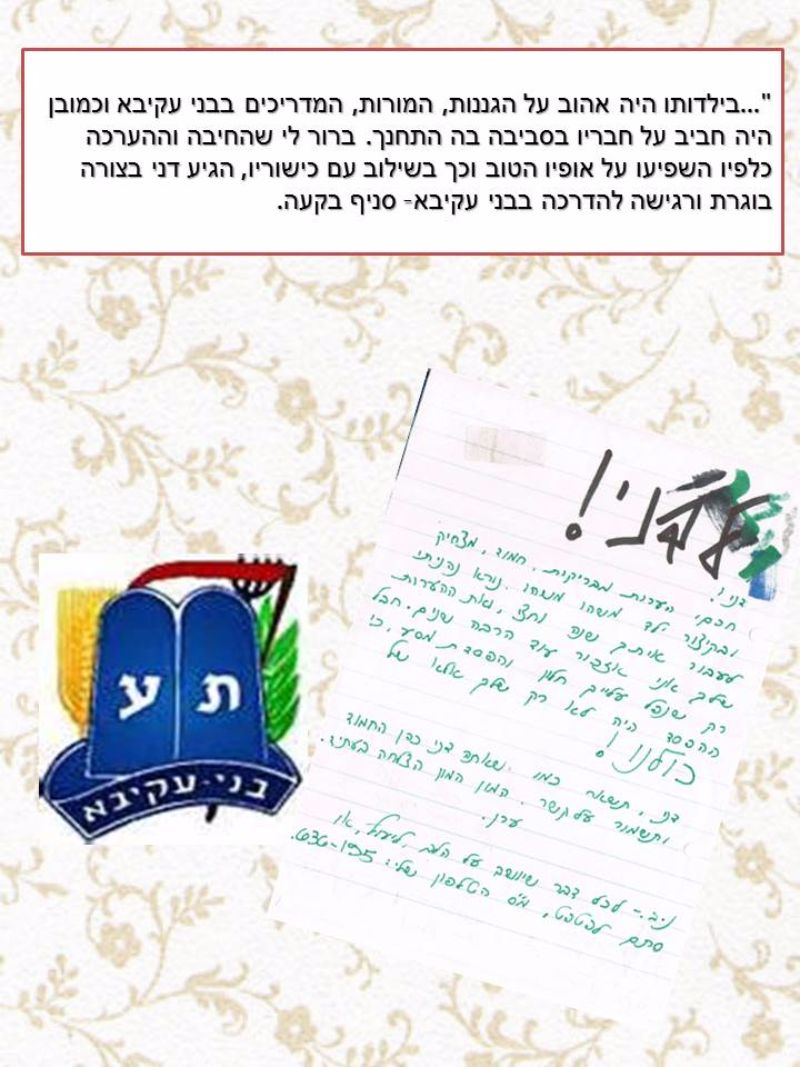 "...בילדותו היה אהוב על הגננות, המורות, המדריכים בבני עקיבא וכמובן
היה חביב על חבריו בסביבה בה התחנך. ברור לי שהחיבה וההערכה
כלפיו השפיעו על אופיו הטוב וכך בשילוב עם כישוריו, הגיע דני בצורה
בוגרת ורגישה להדרכה בבני עקיבא- סניף בקעה.
לדני!
דני!
חכם, הערות מבריקות, חמוד, מצחיק
ובקיצור ילד משהו משהו. נורא נהניתי
לעבוד איתך שנה וחצי, ואת ההערות
שלך אני אזכור עוד הרבה שנים. חבל
רק שנפל עלייך חלון והפסדת מסע, כי
ההפסד היה לא רק שלך אלא של
כולנו!
דני, תשאר כמו שאתה דני כדן החמוד
ותשמור על קשר. המון המון הצלחה בעתיד.
ערן.
נ.ב.- לכל דבר שיושב על הלב, לייעוץ, או
סתם לפטפט, מס' הטלפון שלי: 636-195.
ת
ע
בני-עקיבא